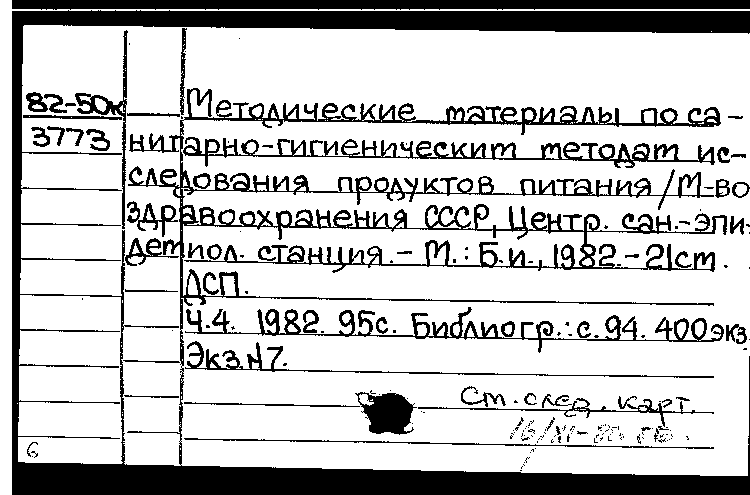 82-50к Методические материалы по са-
3773 нитарно-гигиеническим методам ис-
следования продуктов питания/М-во
здравоохранения СССР, Центр. сан.-эпи-
демиол. станция. – М.: Б.и., 1982. – 21см.
ДСП.
Ч.4. 1982. 95с. Библиогр.: с.94. 400экз
Экз.№7.
См. след. карт.
6